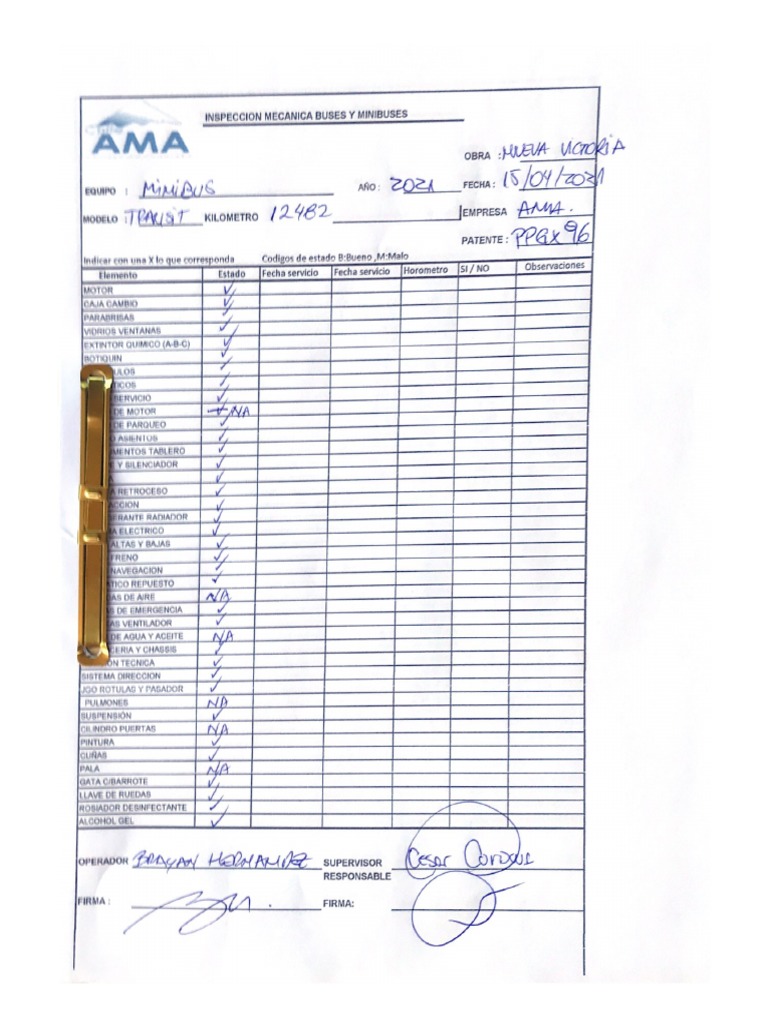 AMA
INSPECCION MECANICA BUSES Y MINIBUSES
OBRA : NUEVA VICTORIA
EQUIPO : MINIBUS AÑO : 2021 FECHA : 15/04/2021
MODELO KILOMETRO 12482 EMPRESA AMA.
PATENTE : PPGX96
Indicar con una X lo que corresponda Codigos de estado B:Bueno ,M:Malo
Elemento Estado Fecha servicio Fecha servicio Horometro SI / NO Observaciones
MOTOR ✓
CAJA CAMBIO ✓
PARABRISAS ✓
VIDRIOS VENTANAS ✓
EXTINTOR QUIMICO (A-B-C) ✓
BOTIQUIN ✓
ULOS ✓
TICOS ✓
SERVICIO ✓
DE MOTOR NA
DE PARQUEO ✓
O ASIENTOS ✓
MENTOS TABLERO ✓
Y SILENCIADOR ✓
✓
A RETROCESO ✓
ACCION ✓
ERANTE RADIADOR ✓
A ELECTRICO ✓
ALTAS Y BAJAS ✓
FRENO ✓
NAVEGACION ✓
TICO REPUESTO ✓
AS DE AIRE NA
S DE EMERGENCIA ✓
AS VENTILADOR ✓
DE AGUA Y ACEITE NA
CERIA Y CHASSIS ✓
ON TECNICA ✓
SISTEMA DIRECCION ✓
JGO ROTULAS Y PASADOR ✓
PULMONES NA
SUSPENSIÓN ✓
CILINDRO PUERTAS NA
PINTURA ✓
CUÑAS ✓
PALA NA
GATA C/BARROTE ✓
LLAVE DE RUEDAS ✓
ROSIADOR DESINFECTANTE ✓
ALCOHOL GEL ✓
OPERADOR BRAYAN HERNANDEZ SUPERVISOR Cesar
RESPONSABLE
FIRMA : FIRMA: